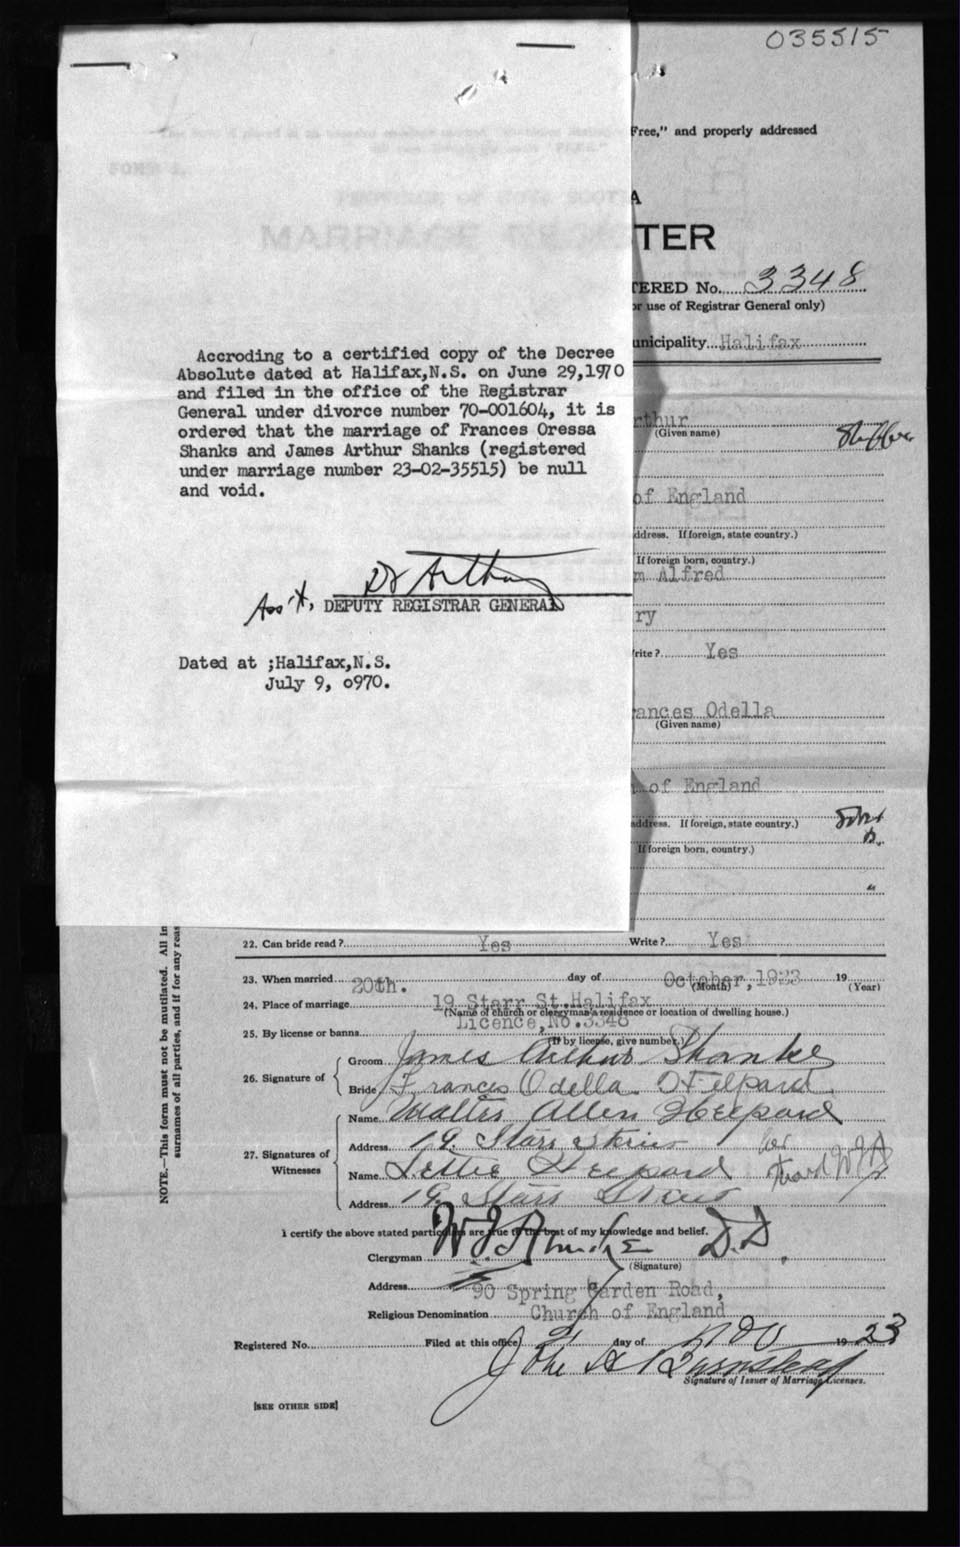 035515
Free," and properly addressed
FORM A.
PROVINCE OF NOVA SCOTIA
MARRIAGE REGISTER
TERED No. 3348
or use of Registrar General only)
unicipality Halifax
Accroding to a certified copy of the Decree
Absolute dated at Halifax,N.S. on June 29,1970
and filed in the office of the Registrar
General under divorce number 70-001604, it is
ordered that the marriage of Frances Oressa
Shanks and James Arthur Shanks (registered
under marriage number 23-02-35515) be null
and void.
Ass't. DEPUTY REGISTRAR GENERAL
Dated at ;Halifax,N.S.
July 9, o970.
rthur
(Given name)
of England
ddress. If foreign, state country.)
If foreign born, country.)
m Alfred
ry
rite? Yes
ances Odella
(Given name)
of England
address. If foreign, state country.)
If foreign born, country.)
NOTE.—This form must not be mutilated. All in
surnames of all parties, and if for any reas
22. Can bride read? Yes Write? Yes
23. When married 20th. day of October,1923 19
(Month) (Year)
24. Place of marriage 19 Starr St.Halifax
(Name of church or clergyman's residence or location of dwelling house.)
25. By license or banns Licence,No.3348
(If by license, give number.)
26. Signature of Groom James Arthur Shanks
Bride Frances Odella
27. Signatures of Witnesses
Name Walter Allen
Address 19 Starr Street
Name
Address 19 Starr Street
I certify the above stated particulars are true to the best of my knowledge and belief.
Clergyman D.D.
(Signature)
Address 90 Spring Garden Road,
Religious Denomination Church of England
Registered No. Filed at this office 21 day of Nov 1923
Signature of Issuer of Marriage Licenses.
[SEE OTHER SIDE]